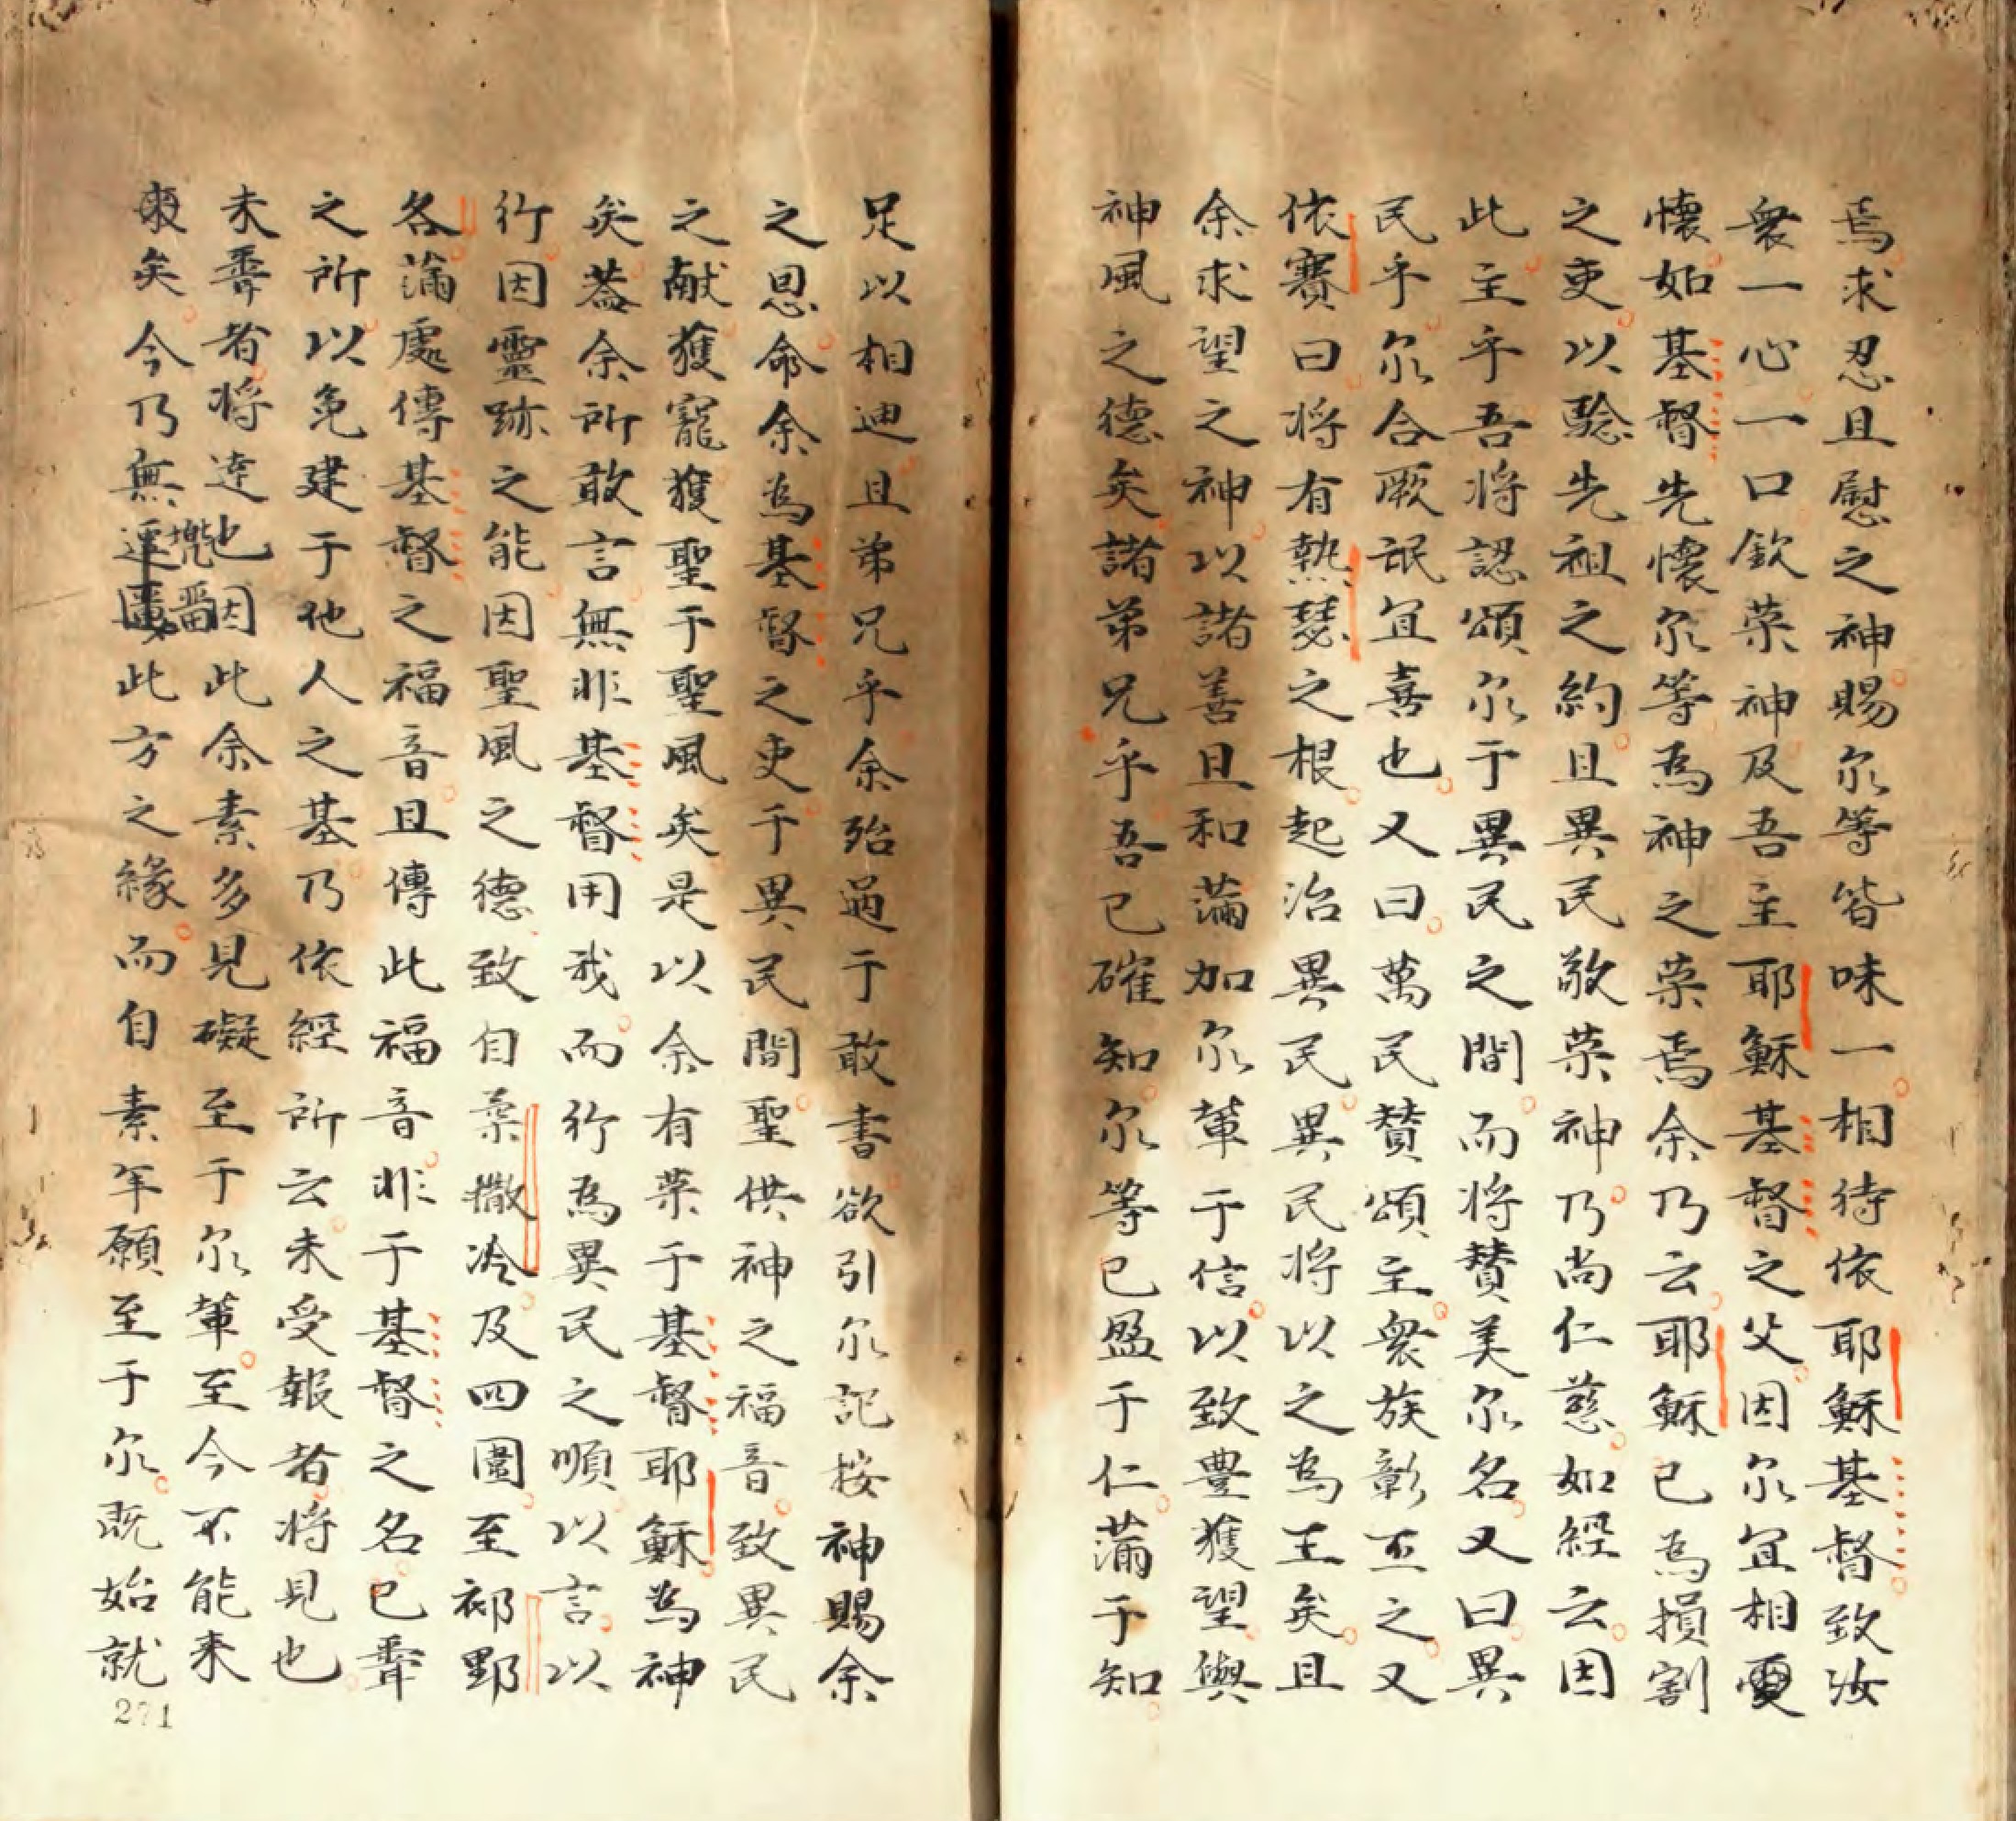 焉求忍且慰之神賜尔等皆味一相待依耶穌基督致汝
衆一心一口欽荣神及吾主耶穌基督之父因尔宜相
懷如基督先懷尔等為神之荣焉余乃云耶穌已為損割
之吏以騐先祖之約且異民敬荣神乃尚仁慈如經云因
此主乎吾将認頌尔于異民之間而将賛美尔名又曰異
民乎尔合厥氓宜喜也又曰萬民賛頌主衆族彰丕之又
依賽曰将有熱瑟之根起治異民異民将以之為王矣且
余求望之神以諸善且和滿加尔輩于信以致豊獲望與
神風之德矣諸弟兄乎吾已確知尔等已盈于仁滿于知
足以相迪且弟兄乎余殆過于敢書欲引尔記按神賜余
之恩命余為基督之吏于異民間聖供神之福音致異民
之献獲寵獲聖于聖風矣是以余有荣于基督耶穌為神
矣葢余所敢言無非基督用我而行為異民之順以言以
行因靈跡之能因聖風之德致自柔撒冷及四圍至祁野
各滿處傳基督之福音且傳此福音非于基督之名已聲
之所以免建于他人之基乃依經所云未受報者将見也
未聾者将達也因此余素多見礙至于尔輩至今不能来
矣今乃無此方之緣而自素年願至于尔既始就
墝畱
271